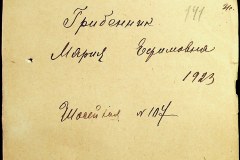 141
Грибенник
Мария Ефимовна
1923
Шосейная № 107